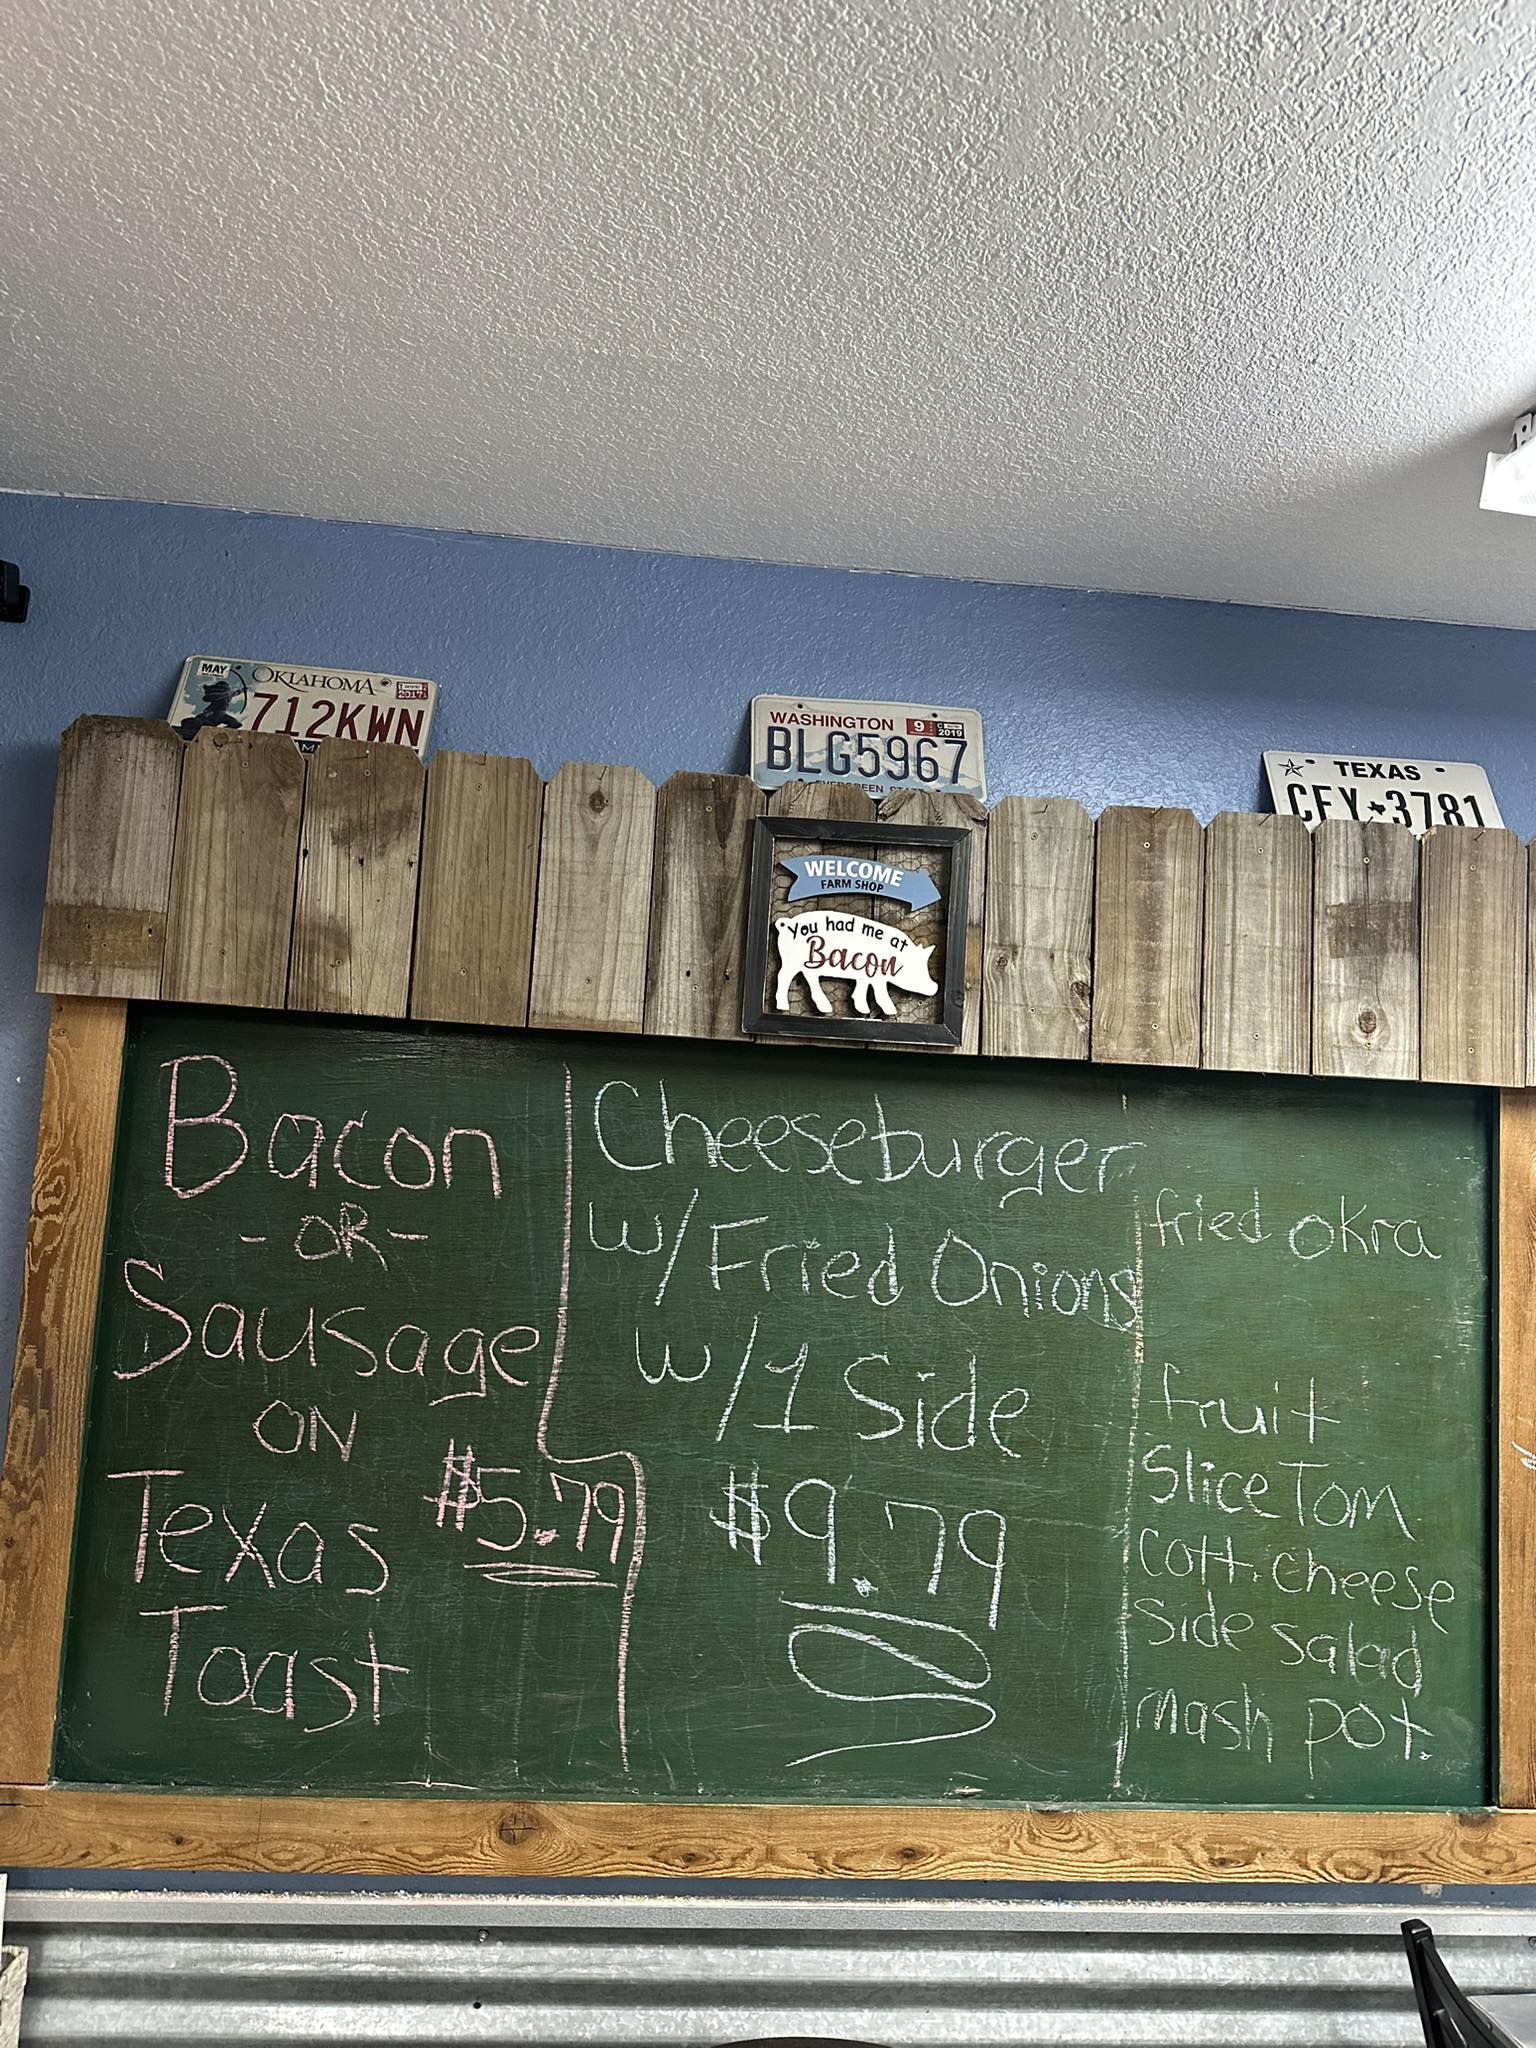 MAY OKLAHOMA
2017
712KWN
WASHINGTON 9
2019
BLG5967
EVERGREEN STATE
TEXAS
CFY 3781
WELCOME
FARM SHOP
You had me at
Bacon
Bacon
- OR -
Sausage
ON
Texas
Toast
$5.79
Cheeseburger
w/Fried Onions
w/1 Side
$9.79
fried okra
fruit
Slice Tom
Cott. cheese
side salad
mash pot.